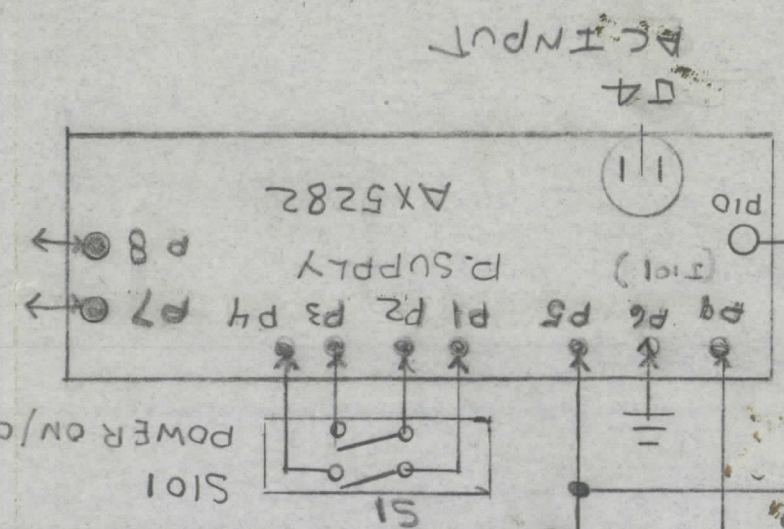 S1
S101
POWER ON/O
P9 P6 P5 P1 P2 P3 P4 P7
(J101) P.SUPPLY P8
P10 AX5282
J4
AC INPUT